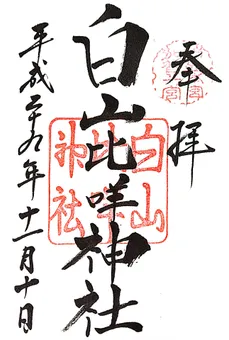 奉拝
白山比咩神社
白山比咩神社
平成二十九年十一月十日